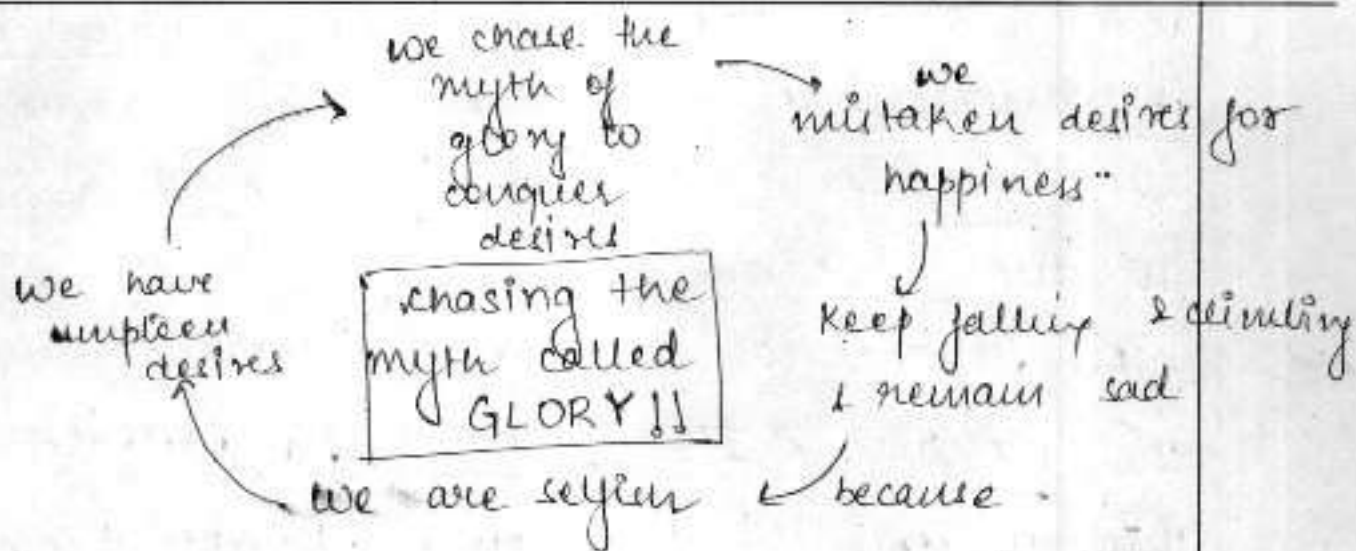 we chase the
myth of
glory to
conquer
desires
we
mistaken desires for
happiness"
keep falling & climbing
& remain sad
because
we are selfish
we have
umpteen
desires
chasing the
myth called
GLORY !!